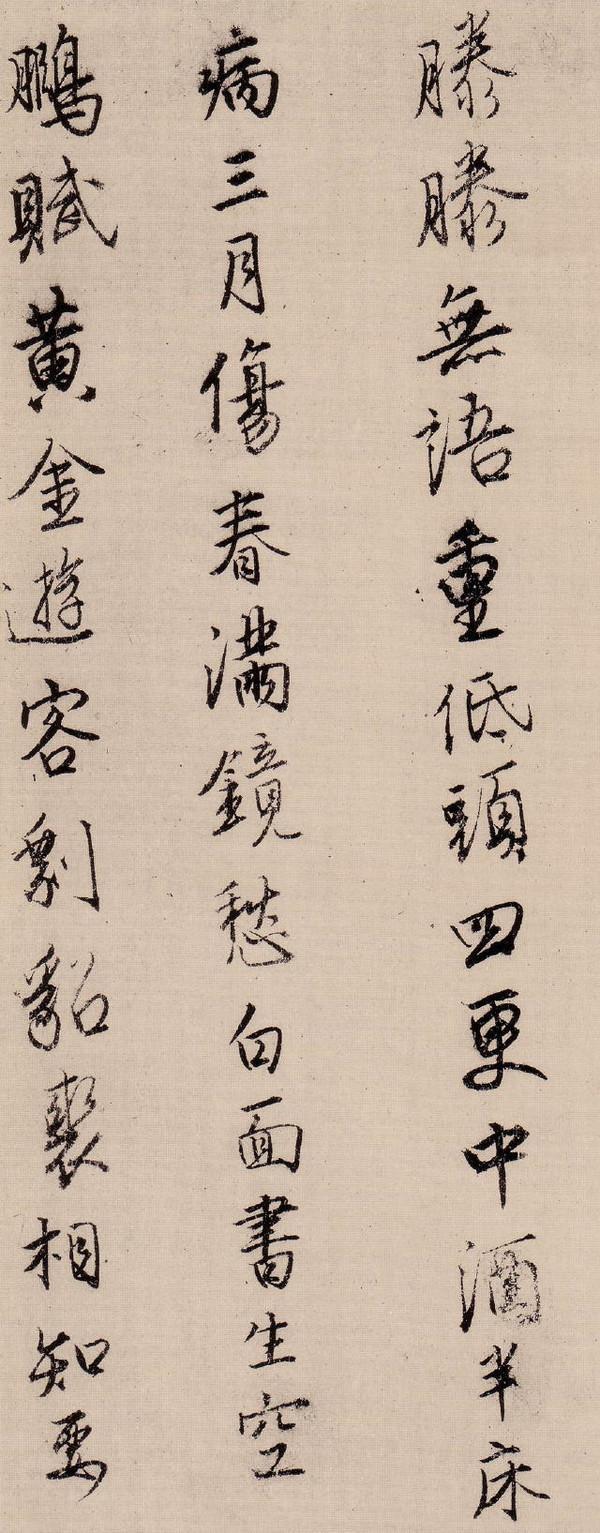 滕滕無語重低頭四更中酒半床
病三月傷春滿鏡愁白面書生空
鵩賦黃金遊客剩貂裘相知要